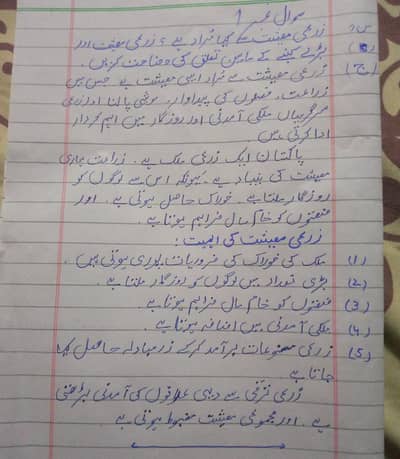 سوال نمبر 1
س: زرعی معیشت سے کیا مُراد ہے؟ زرعی معیشت اور
بڑے کینے کے مابین تعلق کی وضاحت کریں۔
(ج) زرعی معیشت سے مُراد ایسی معیشت ہے جس میں
زراعت، فصلوں کی پیداوار، مویشی پالنا اور زرعی
سرگرمیاں ملکی آمدنی اور روزگار میں اہم کردار
ادا کرتی ہیں
پاکستان ایک زرعی ملک ہے۔ زراعت ہماری
معیشت کی بنیاد ہے۔ کیونکہ اس سے لوگوں کو
روزگار ملتا ہے۔ خوراک حاصل ہوتی ہے۔ اور
صنعتوں کو خام مال فراہم ہوتا ہے۔
زرعی معیشت کی اہمیت:
(1) ملک کی خوراک کی ضروریات پوری ہوتی ہیں۔
(2) بڑی تعداد میں لوگوں کو روزگار ملتا ہے۔
(3) صنعتوں کو خام مال فراہم ہوتا ہے۔
(4) ملکی آمدنی میں اضافہ ہوتا ہے۔
(5) زرعی مصنوعات برآمد کرکے زرمبادلہ حاصل کیا
جاتا ہے۔
زرعی ترقی سے دیہی علاقوں کی آمدنی بڑھتی
ہے۔ اور مجموعی معیشت مضبوط ہوتی ہے۔